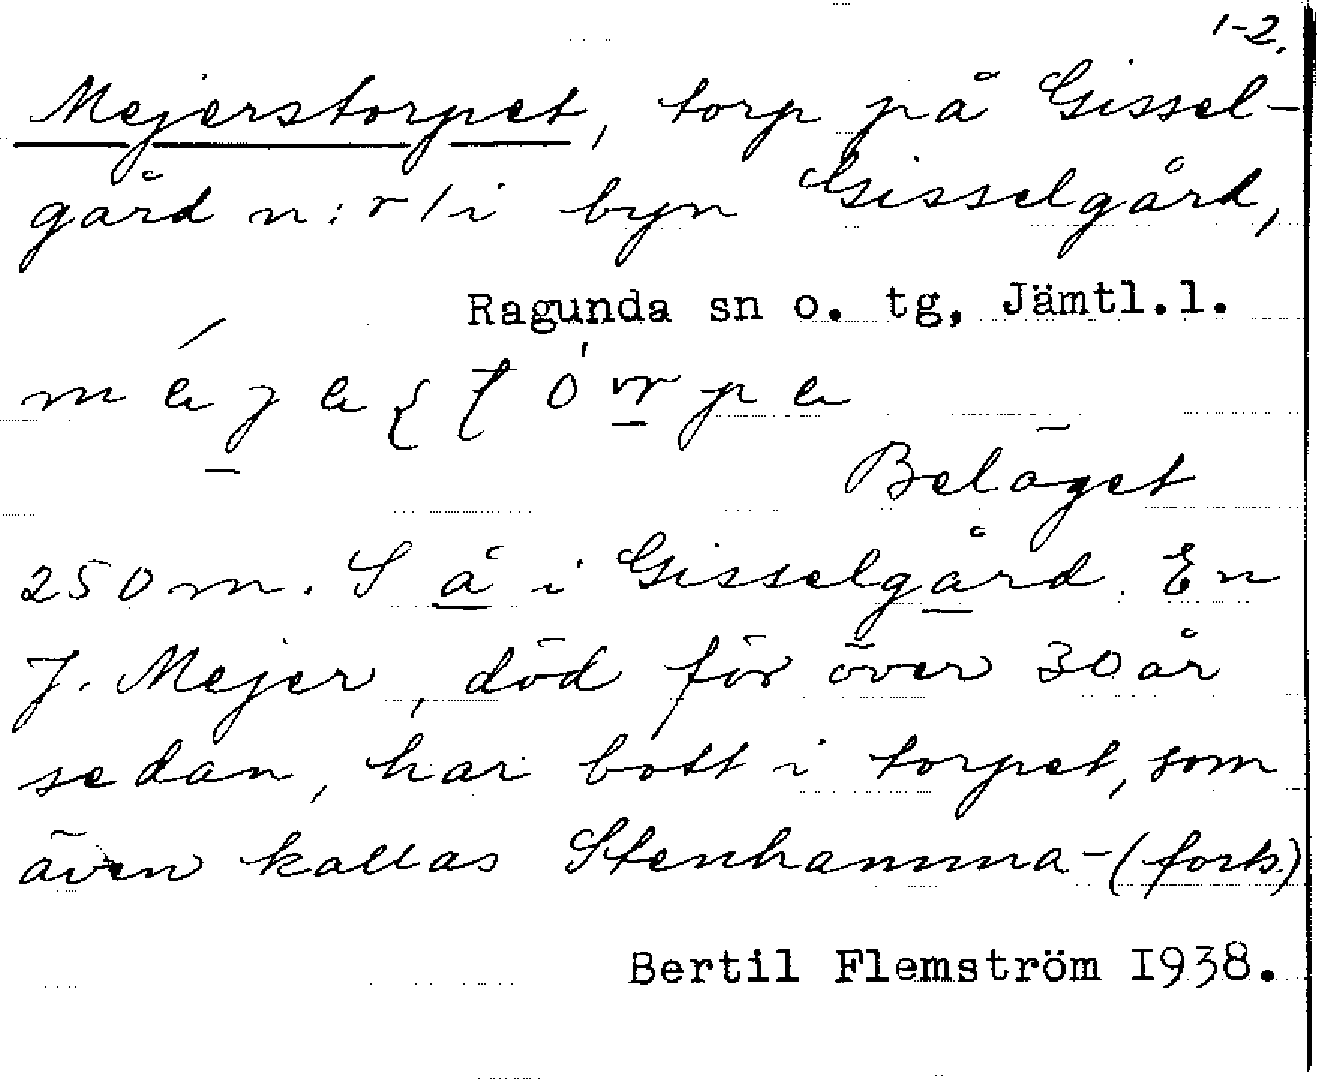 1-2.
Mejerstorpet, torp på Gissel-
gård n:r 1 i byn Gisselgård,
Ragunda sn o. tg, Jämtl.l.
Beläget
250 m. S å i Gisselgård. En
J. Mejer, död för över 30 år
sedan, har bott i torpet, som
även kallas Stenhamma- (forts.)
Bertil Flemström 1938.